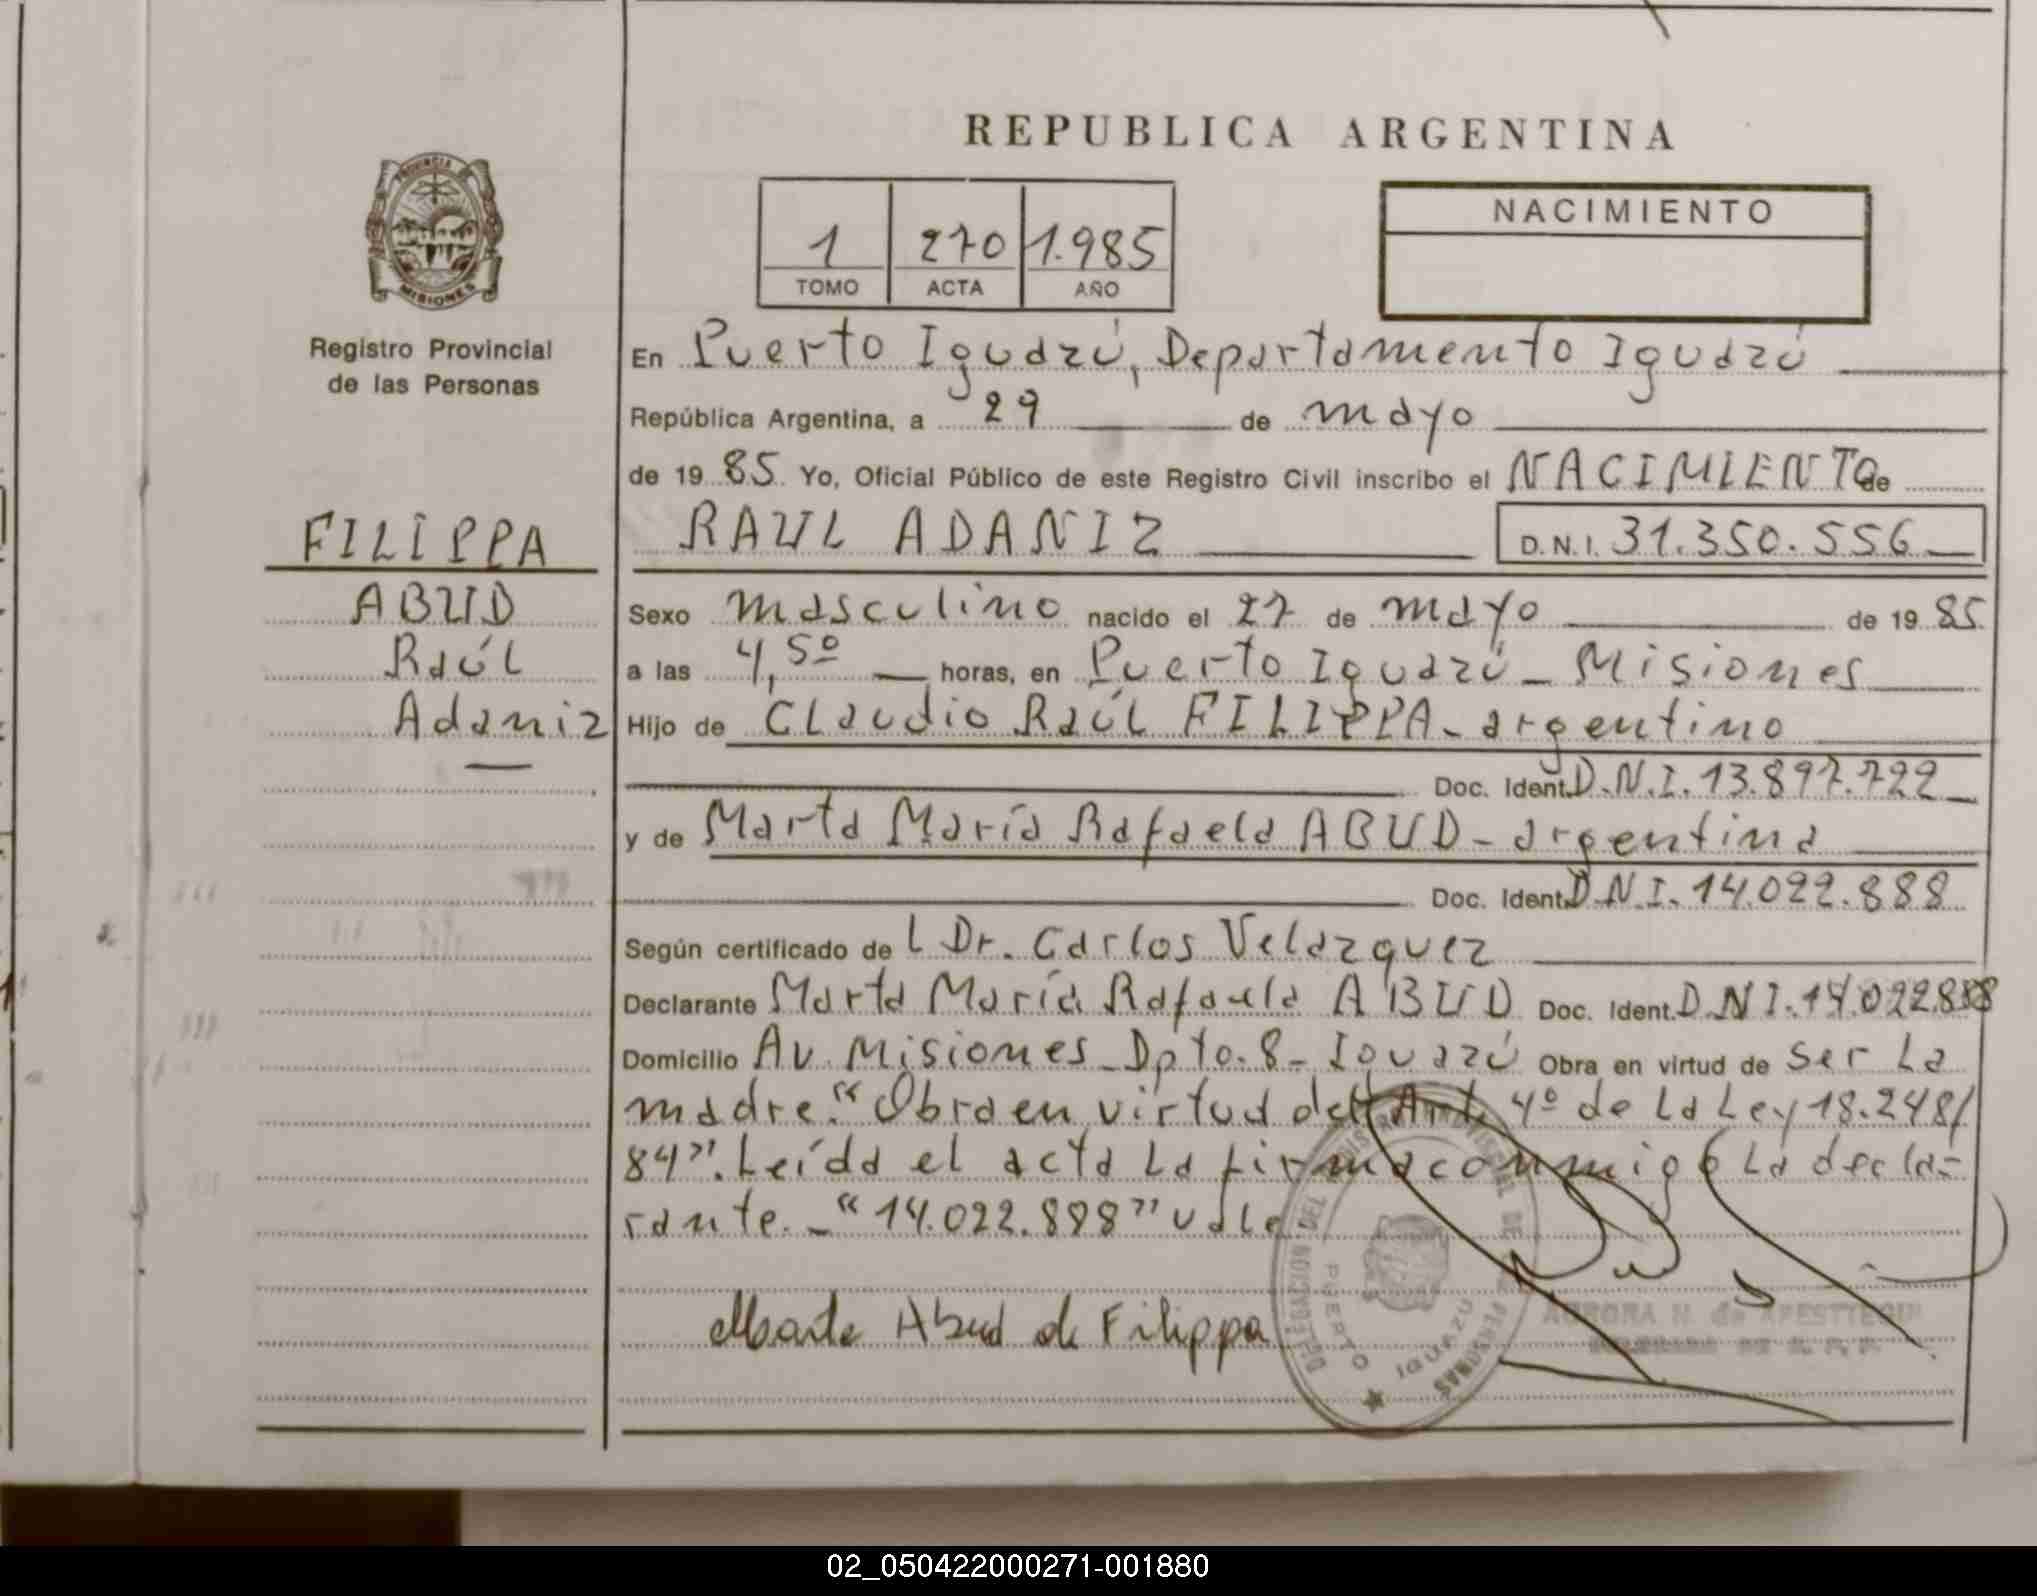 REPUBLICA ARGENTINA
PROVINCIA DE
MISIONES
Registro Provincial
de las Personas
1 270 1.985
TOMO ACTA AÑO
NACIMIENTO
FILIPPA
ABUD
Raúl
Adaniz
En Puerto Iguazú, Departamento Iguazú
República Argentina, a 29 de mayo
de 19 85 Yo, Oficial Público de este Registro Civil inscribo el NACIMIENTO de
RAUL ADANIZ D.N.I. 31.350.556
Sexo masculino nacido el 27 de mayo de 19 85
a las 4,50 horas, en Puerto Iguazú - Misiones
Hijo de Claudio Raúl FILIPPA - argentino
Doc. Ident. D.N.I. 13.897.722
y de Marta María Rafaela ABUD - argentina
Doc. Ident. D.N.I. 14.022.888
Según certificado de l Dr. Carlos Velazquez
Declarante Marta María Rafaela ABUD Doc. Ident. D.N.I. 14.022.888
Domicilio Av. Misiones - Dpto. 8 - Iguazú Obra en virtud de ser la
madre. "Obra en virtud del Art. 4º de la Ley 18.248/
84". Leída el acta la firma conmigo la decla-
rante. - "14.022.888" vale
Marta Abud de Filippa
DELEGACION DEL REGISTRO PROVINCIAL DE LAS PERSONAS
PUERTO IGUAZU
AURORA N. de APESTEGUI
DELEGADA DE R. P. P.
02_050422000271-001880